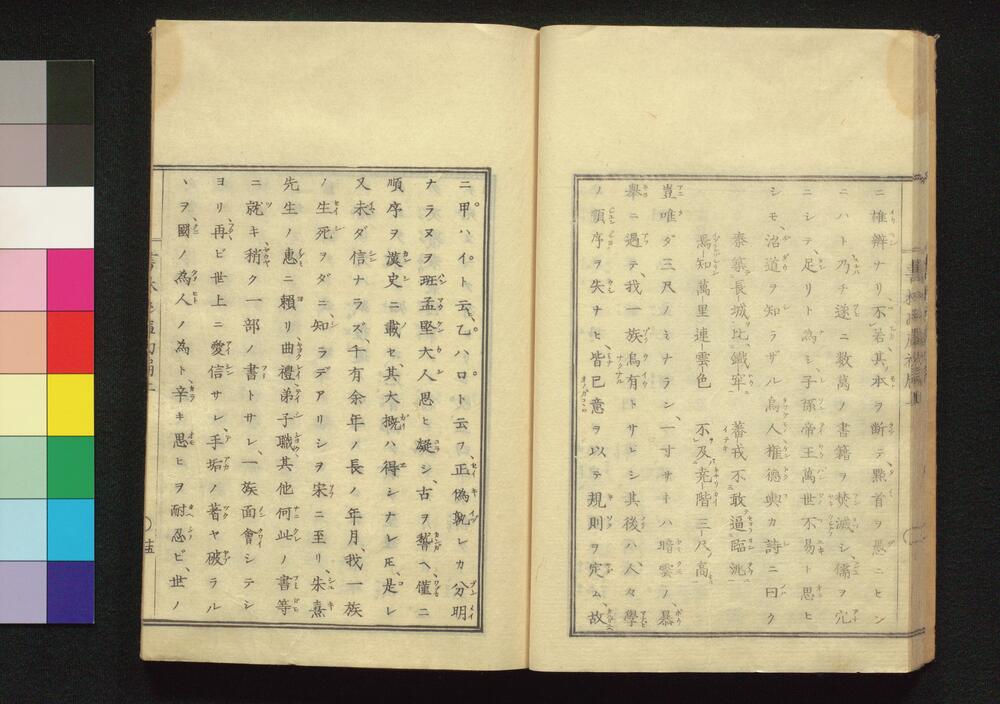 ニ雄辨ナリ、不若其本ヲ断テ黔首ヲ愚ニセン
ニハト乃チ遂ニ数萬ノ書籍ヲ焚滅シ、儒ヲ穴
ニシテ、足リト為シ、子孫帝王萬世不易ト思ヒ
シモ、治道ヲ知ラザル烏人權德輿カ詩ニ曰ク
秦築長城比鐵牢 蕃戎不敢逼臨洮
焉知萬里連雲色 不及堯階三尺高
豈唯ダ三尺ノミナラン、一寸サキハ暗雲ノ、暴
舉ニ遇テ、我一族烏有トサレシ其後ハ、人々學
ノ順序ヲ失ナヒ、皆己意ヲ以テ規則ヲ定ム、故
ニ甲ハイト云、乙ハロト云フ、正偽孰レカ分明
ナラヌヲ班孟堅大人思ヒ凝シ、古ヲ誓ヘ、僅ニ
順序ヲ漢史ニ載セ、其大概ハ得シナレ𪜈、是レ
又未ダ信ナラズ、千有余年ノ長ノ年月、我一族
ノ生死ヲダニ、知ラデアリシヲ宋ニ至リ、朱熹
先生ノ惠ニ頼リ曲禮、弟子職其他何此ノ書等
ニ就キ、稍ク一部ノ書トサレ、一族面會シテシ
ヨリ、再ビ世上ニ愛信サレ、手垢ノ著ヤ破ラル
ヽヲ國ノ為人ノ為ト辛キ思ヒヲ耐忍ビ、世ノ